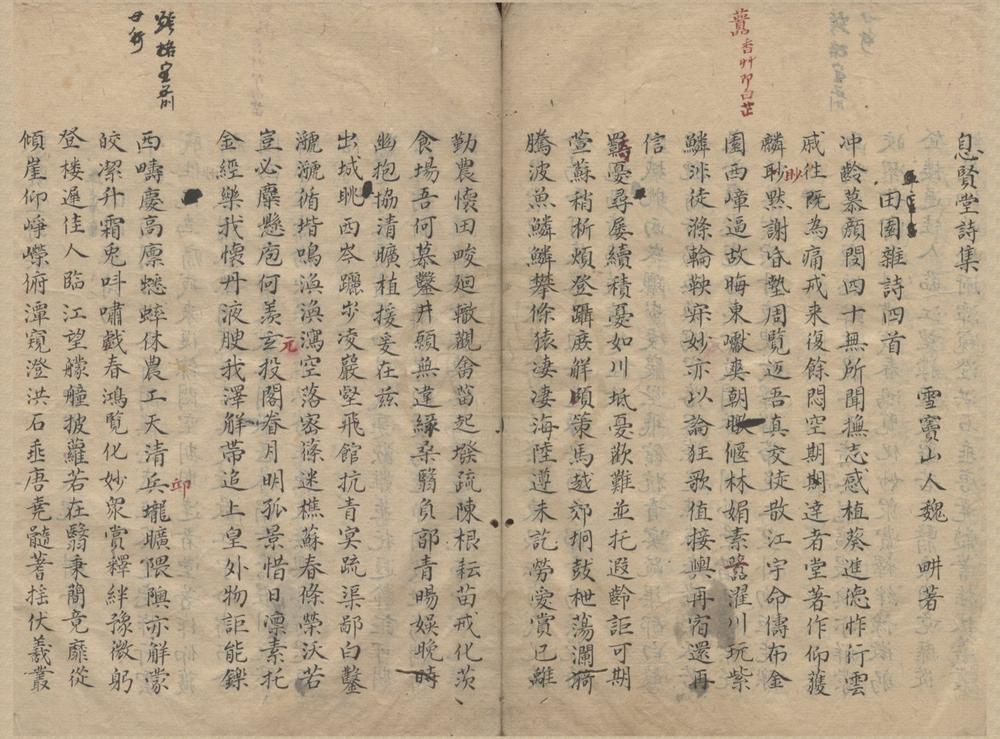 息賢堂詩集
雪竇山人魏畊著
田園雜詩四首
冲齡慕顏閔四十無所聞撫志感植葵進德怍行雲
戚徃既為痛戒来復餘悶空期期達者堂著作仰獲
麟耿黙謝昏墊周覧迈吾真交徒散江宇命儔布金
園西嶂逼故晦東巘輿朝暾偃林媚素濯川玩紫
鱗泮徒滌輪鞅寂妙亦以論狂歌值接輿再宿還再
信
羈雲尋屢續積憂如川坻憂歡難並托遐齡詎可期
萱蘇稍析煩登躡展觧頤策馬越郊坰鼓枻蕩瀾漪
騰波魚鱗鱗攀條猿淒淒海陸遵未訖勞愛賞已離
勤農懷田畯廻轍觀畬菑起墢疏陳根耘苗戒化茨
食場吾何慕鑿井願無違緣桑翳負郭青暘娛晚時
幽抱協清曠植援爰在兹
出城眺西岑躧步凌巖壑飛館抗青冥疏渠鄙白鑿
漉漉循堦鳴渙渙瀉空落密篠迷樵蘇春條榮沃若
豈必靡懸庖何羨玄投閣眷月明孤景惜日凛素托
金經樂我懷丹液腴我澤觧帶追上皇外物詎能鑠
西疇慶高廪蟋蟀休農工天清兵壠曠隈隩亦觧蒙
皎潔升霜兔呌嘯戱春鴻覧化妙衆賞釋絆豫微躬
登楼遲佳人臨江望艨艟披蘿若在翳秉蕑竟靡從
傾崖仰崢嶸俯潭窺澄洪石乖唐堯髓蓍揺伏羲叢
香艸即白芷
眇
元
邱